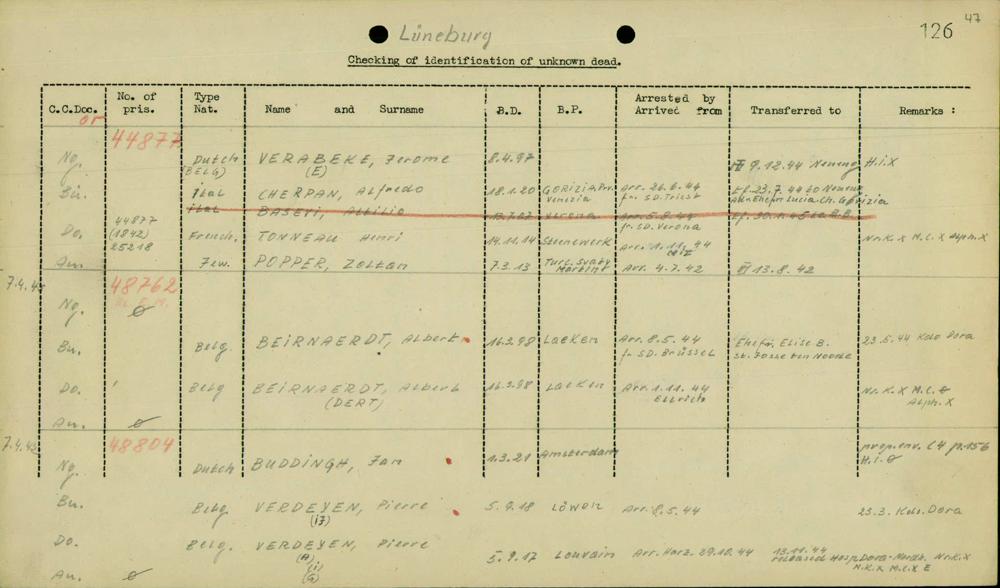 47
126
Lüneburg
Checking of identification of unknown dead.
C.C.Doc. No. of pris. Type Nat. Name and Surname B.D. B.P. Arrested by Arrived from Transferred to Remarks :
or
44877
Ng. Dutch VERABEKE, Jerome 8.4.97 9.12.44 Neueng. H.i.X
(BELG) (E)
Bu. ital CHERPAN, Alfredo 18.1.20 GORIZIA Prv. Venezia Arr. 26.6.44 fr. S.D. Triest Ef. 23.7.44 to Neueng
Lucia Ch. Gorizia
ital BASEVI, Attilio Verona Arr. 5.8.44 fr. SD. Verona
44877
Do. (1842) French. TONNEAU Henri 14.11.14 Steenewerk Arr. 1.11.44 Nr.K.X M.C.X Alph.X
25218
Au. Jew. POPPER, Zoltan 7.3.13 Turc. Svaty Martin Arr. 4.7.42 13.8.42
48762
Ng. ø
Bu. Belg. BEIRNAERDT, Albert 16.3.98 Laeken Arr. 8.5.44 fr. SD. Brüssel Ehefr. Elise B. St. Josse ten Noode 23.5.44 Kdo Dora
Do. Belg BEIRNAERDT, Albert 16.3.98 Laeken Arr. 1.11.44 Ellrich Nr.K.X M.C.ø
(DERT) Alph. X
Au. ø
7.4.42 48804
Ng. Dutch BUDDINGH, Jan 1.3.21 Amsterdam H.i.ø
Bu. Belg VERDEYEN, Pierre 5.9.18 Löwen Arr. 8.5.44 23.3. Kdo. Dora
(ij)
Do. Belg. VERDEYEN, Pierre 5.9.17 Louvain Arr. Harz. 29.10.44 13.11.44 released Hosp. Dora Nr.K.X
(A) N.K.X M.C.X E
(i)
(G)
Au. ø